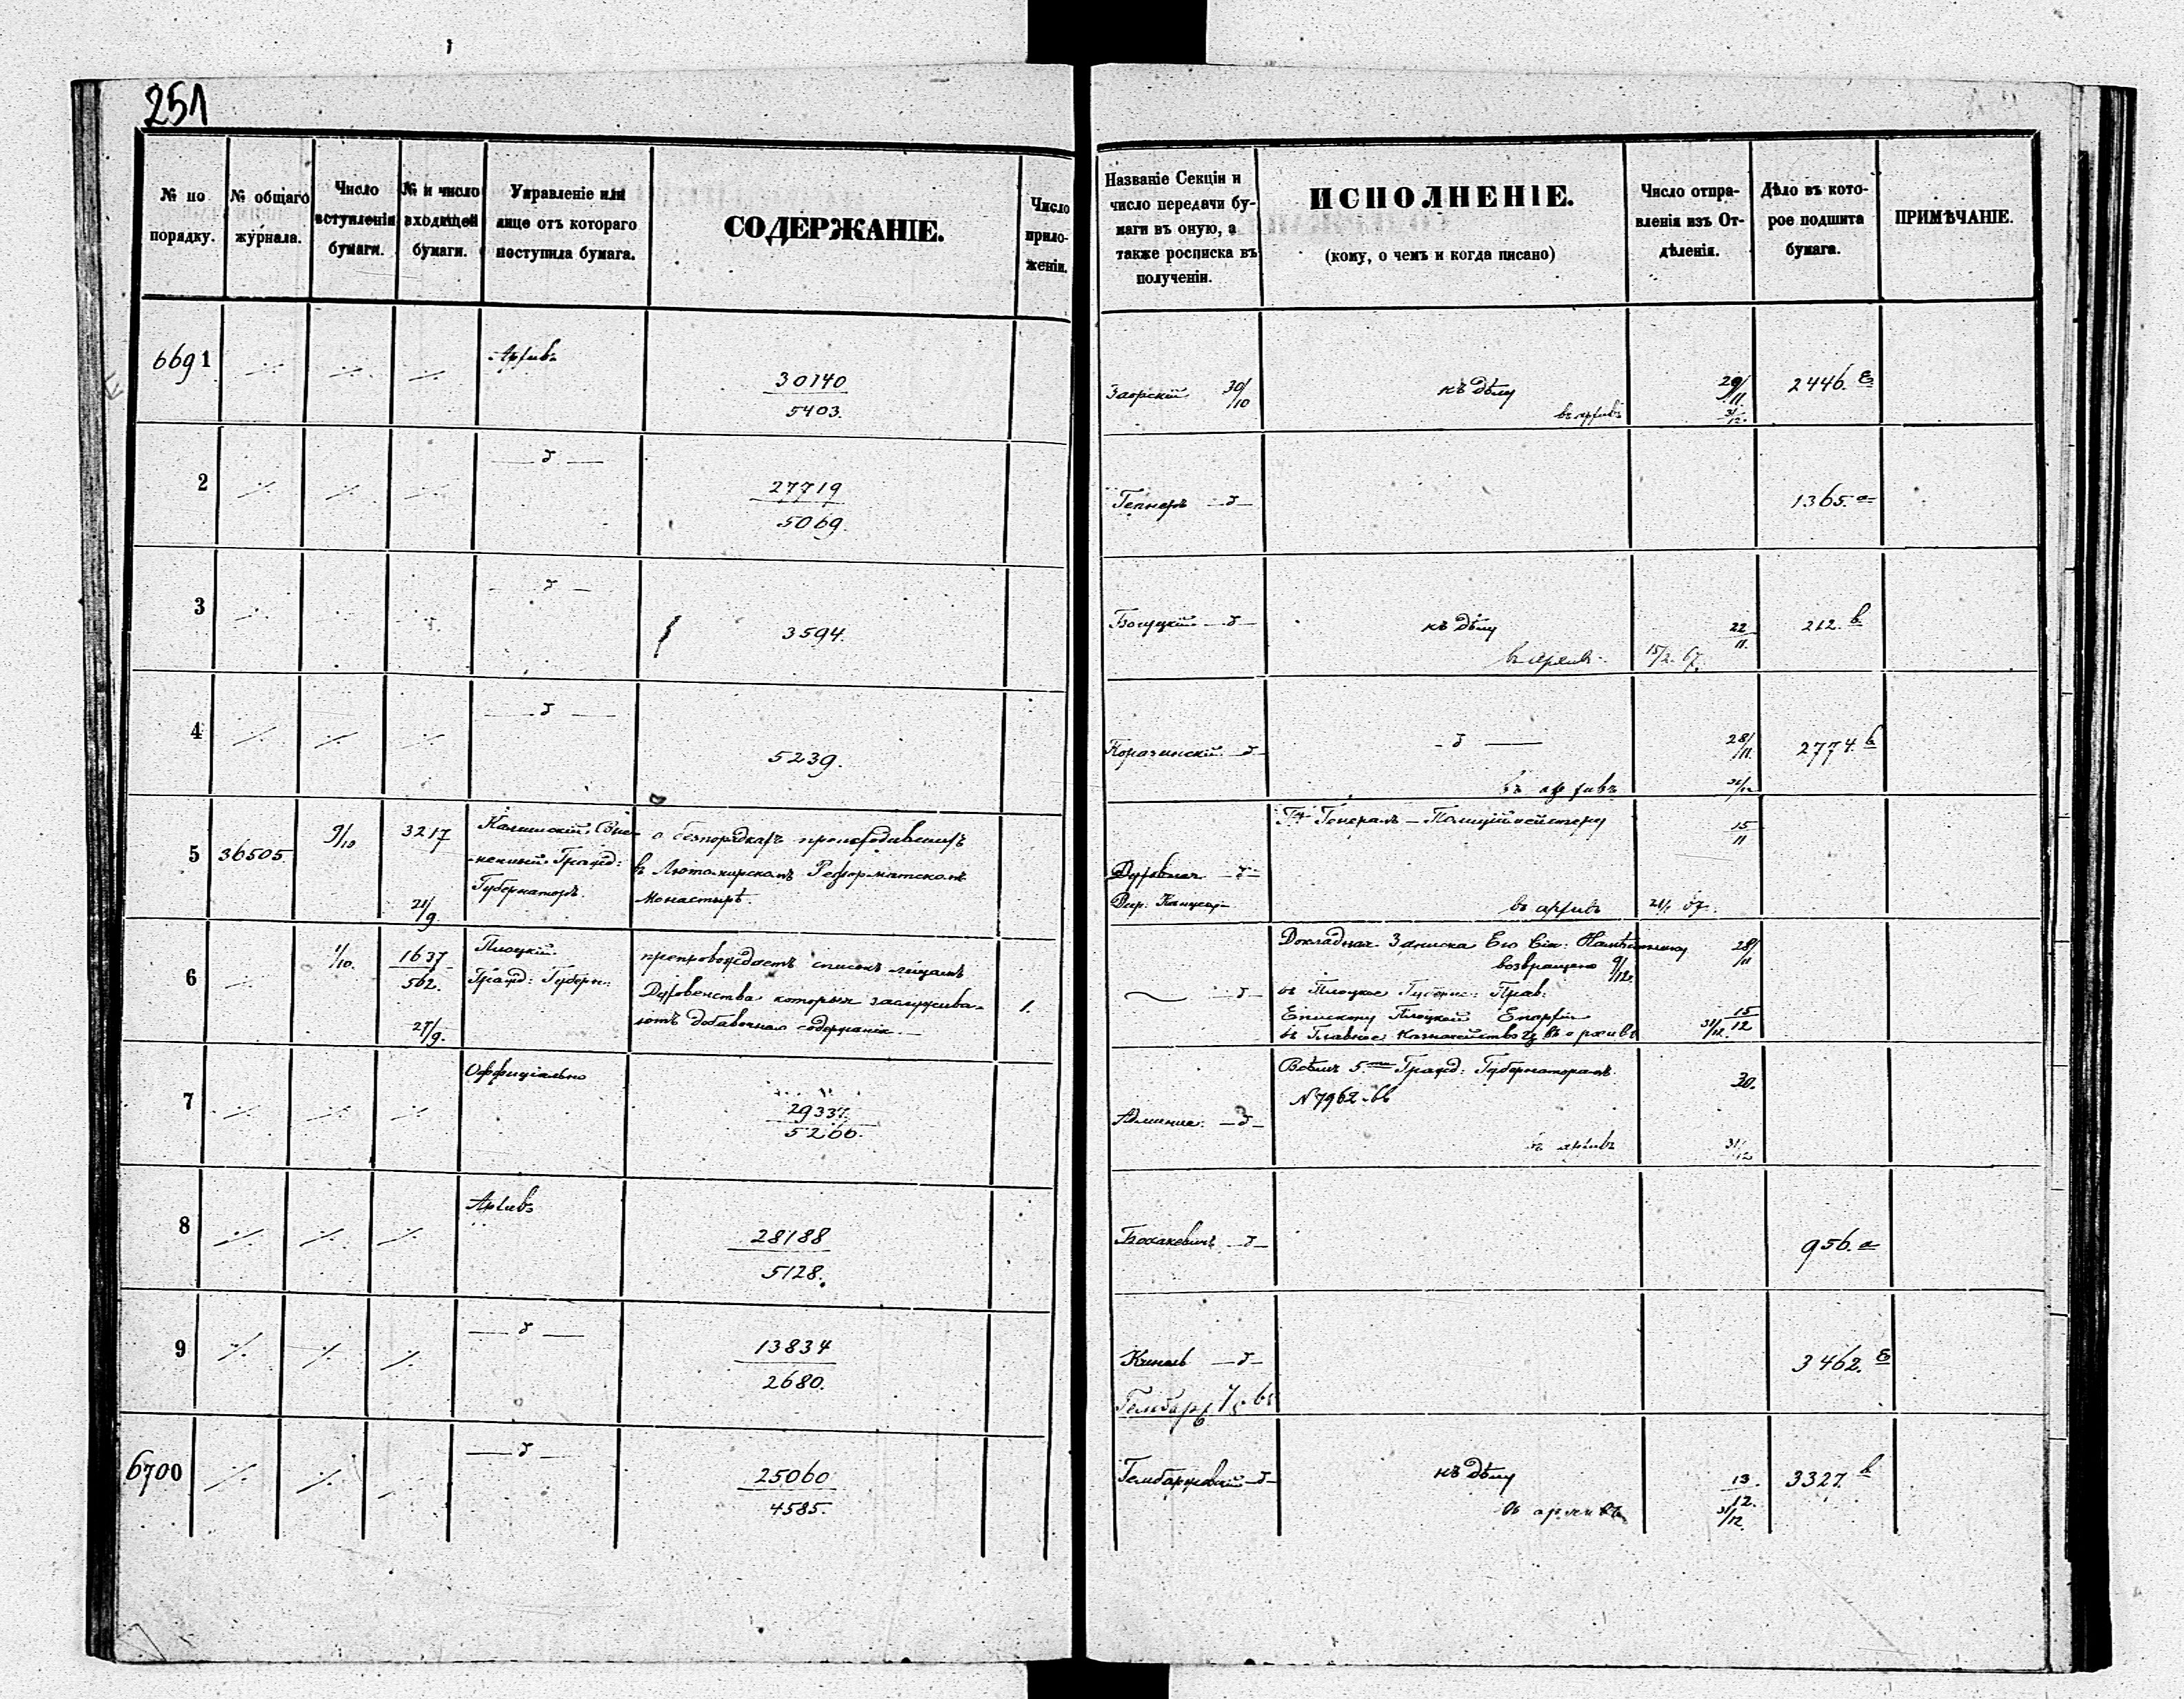 251
№ по порядку.
№ общаго журнала.
Число вступленія бумаги.
№ и число входящей бумаги.
Управленіе или лице отъ котораго поступила бумага.
СОДЕРЖАНІЕ.
Число приложеніи.
Названіе Секціи и число передачи бумаги въ оную, а также росписка въ полученіи.
ИСПОЛНЕНІЕ.
(кому, о чемъ и когда писано)
Число отправленія изъ Отдѣленія.
Дѣло въ которое подшита бумага.
ПРИМѢЧАНІЕ.
6691 ·/. ·/. ·/. Архивъ
30140
5403.
30/10
къ дѣлу
29/11.
2446. Б
въ архивъ
31/12.
2 ·/. ·/. ·/. — д —
27719
5069.
— д —
1365. а
3 ·/. ·/. ·/. — д —
3594.
— д —
къ дѣлу
22/11.
212. в
въ архивъ
15/2 67.
4 ·/. ·/. ·/. — д —
5239.
— д —
— д —
28/11.
2774. в
въ архивъ
31/12
5 36505 9/10 3217
21/9
Калишскій Воен-
-ненный Гражд:
Губернаторъ.
о безпорядкахъ происходившихъ
въ Лютомирскомъ Реформатскомъ
Монастырѣ.
Духовная — д —
Дир. Канцер.
Гну Генералъ-Полиціймейстеру
15/11
въ архивъ
6 ·/. 1/10. 1637
562.
27/9.
Плоцкій
Гражд: Губерн:
препровождаетъ списокъ лицамъ
Духовенства которыя заслужива-
ютъ добавочнаго содержанія.—
1.
— д —
Докладная Записка Его Сія: Намѣстнику
28/11
возвращено 9/12.
въ Плоцкое Губерн: Прав:
Епископу Плоцкой Епархіи
15/12
въ Главное Казначейство въ архивъ
31/12.
7 ·/. ·/. ·/. Оффиціально
29337.
5260.
— д —
Всѣмъ 5.ти Гражд: Губернаторамъ
N 7962
30.
въ архивъ
31/12
8 ·/. ·/. ·/. Архивъ
28188
5128.
— д —
956. а
9 ·/. ·/. ·/. — д —
13834
2680.
— д —
3462. Б
6700 ·/. ·/. ·/. — д —
25060
4585.
— д —
къ дѣлу
13/12.
3327. в
въ архивъ
31/12.